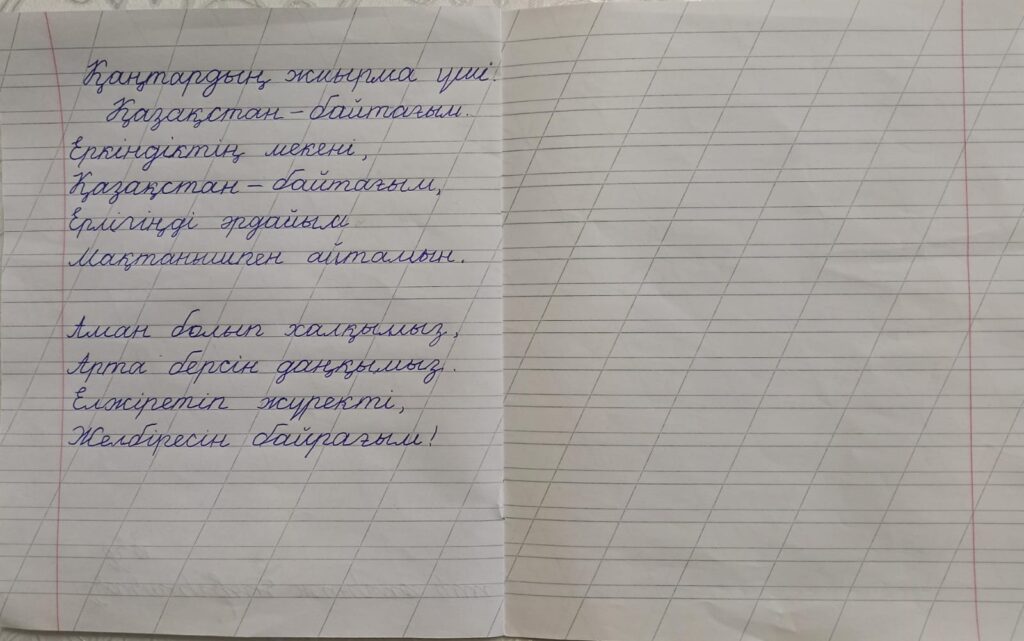 Қаңтардың жиырма үші.
Қазақстан – байтағым.
Еркіндіктің мекені,
Қазақстан – байтағым,
Ерлігіңді әрдайым
Мақтанышпен айтамын.
Аман болып халқымыз,
Арта берсін даңқымыз.
Елжіретіп жүректі,
Желбіресін байрағым!